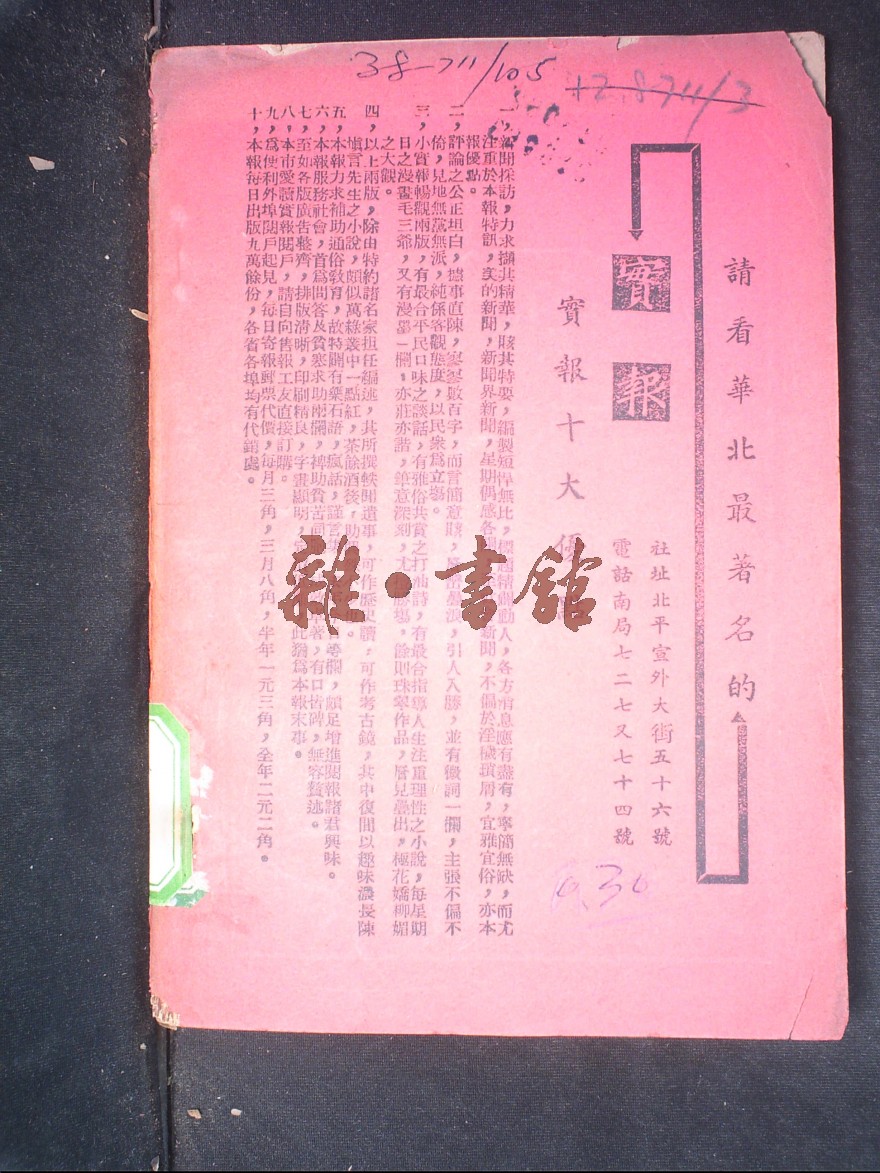 38-711/105
+2.8711/3
請看華北最著名的
實報
社址北平宣外大街五十六號
電話南局七二七又七十四號
實報十大優
一，新聞採訪，力求擷其精華，賅其特要，編製短悍無比，動人，各方消息應有盡有，寧簡無缺，而尤
注重於本報特訊，真的新聞，新聞界新聞，星期偶感各 新聞，不偏於淫穢瑣屑，宜雅宜俗，亦本
報優點。
二，評論之公正坦白，據事直陳，寥寥數百字，而言簡意賅，引人入勝，並有微詞一欄，主張不偏不
倚，見地無黨無派，純係客觀態度，以民衆爲立場。
三，小實報暢觀兩版，有最合平民口味之談話，有雅俗共賞之打油詩，有最合指導人生注重理性之小說，每星期
日之漫畫毛三爺，又有漫墨一欄，亦莊亦諧，筆意深刻，尤 勝場，餘則珠翠作品，層見疊出，極花嬌柳媚
之大觀。
四，以上兩版，除由特約諸名家担任編述，其所撰軼聞遺事，可作歷史讀，可作考古鏡，其中復間以趣味濃長陳
愼言先生之小說，頗似萬綠叢中一點紅，茶餘酒後，助
五，本報力求補助通俗敎育，故特闢有藥石語，瘋話，謹言 等欄，頗足增進閱報諸君興味。
六，本報服務社會，首爲問答及貧寒求助兩欄，裨助貧苦同 著，有口皆碑，無容贅述。
七，至如各版廣告整齊，排版清晰，印刷精良，字畫顯明， 此猶爲本報末事。
八，本市愛讀實報閱戶，請自向售報工友直接訂購。
九，爲便利外埠閱戶起見，每日寄報郵票代價，每月三角，三月八角，半年一元三角，全年二元二角。
十，本報每日出版九萬餘份，各省各埠均有代銷處。
雜·書館
0.30